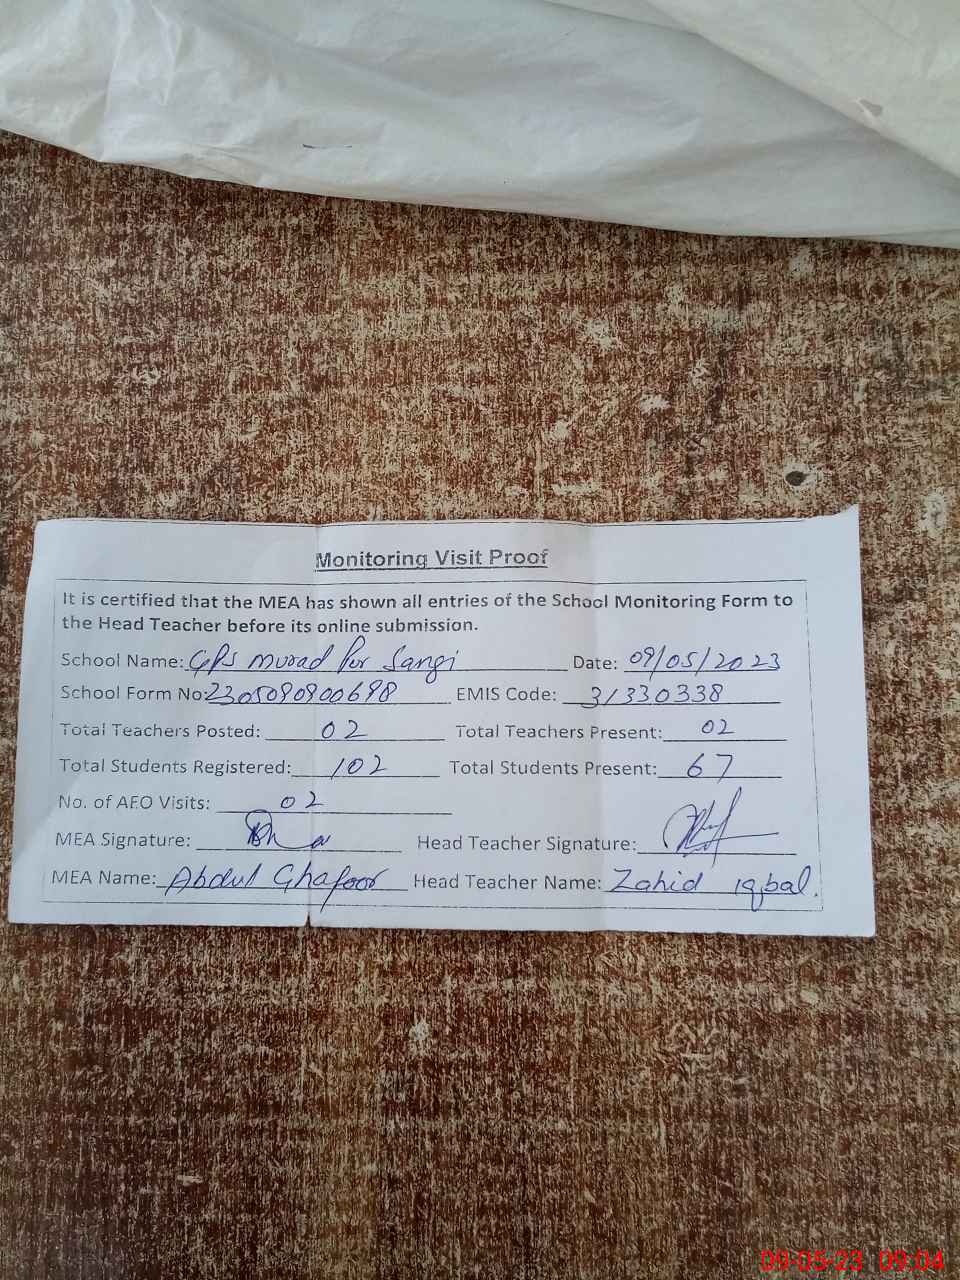 Monitoring Visit Proof
It is certified that the MEA has shown all entries of the School Monitoring Form to
the Head Teacher before its online submission.
School Name: GPS Murad Pur Sangi Date: 09/05/2023
School Form No: 2305090900698 EMIS Code: 31330338
Total Teachers Posted: 02 Total Teachers Present: 02
Total Students Registered: 102 Total Students Present: 67
No. of AEO Visits: 02
MEA Signature: Head Teacher Signature:
MEA Name: Abdul Ghafoor Head Teacher Name: Zahid iqbal.
09-05-23 09:04